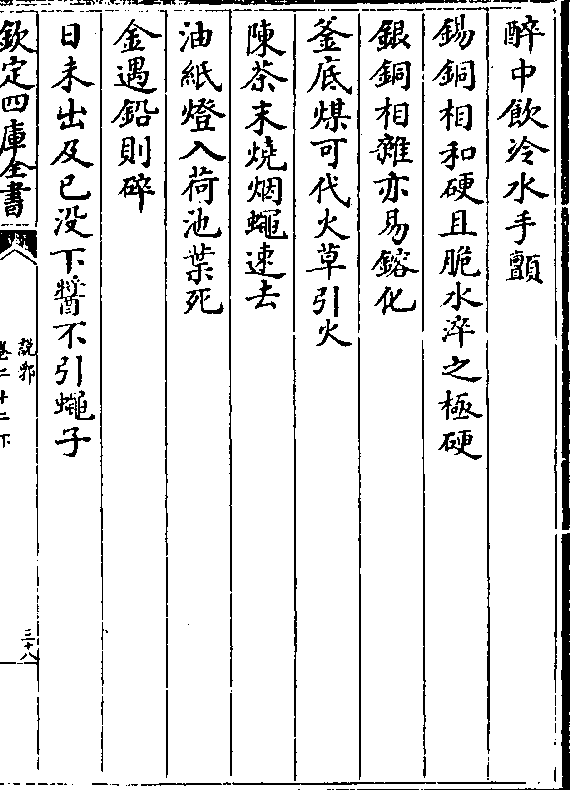 醉中飲冷水手顫
錫銅相和硬且脆水淬之極硬
銀銅相雜亦易鎔化
釜底煤可代火草引火
陳茶末燒烟蠅速去
油紙燈入荷池葉死
金遇鉛則碎
日未出及已没下醬不引蠅子
欽定四庫全書
說郛
卷二十二下
三十八